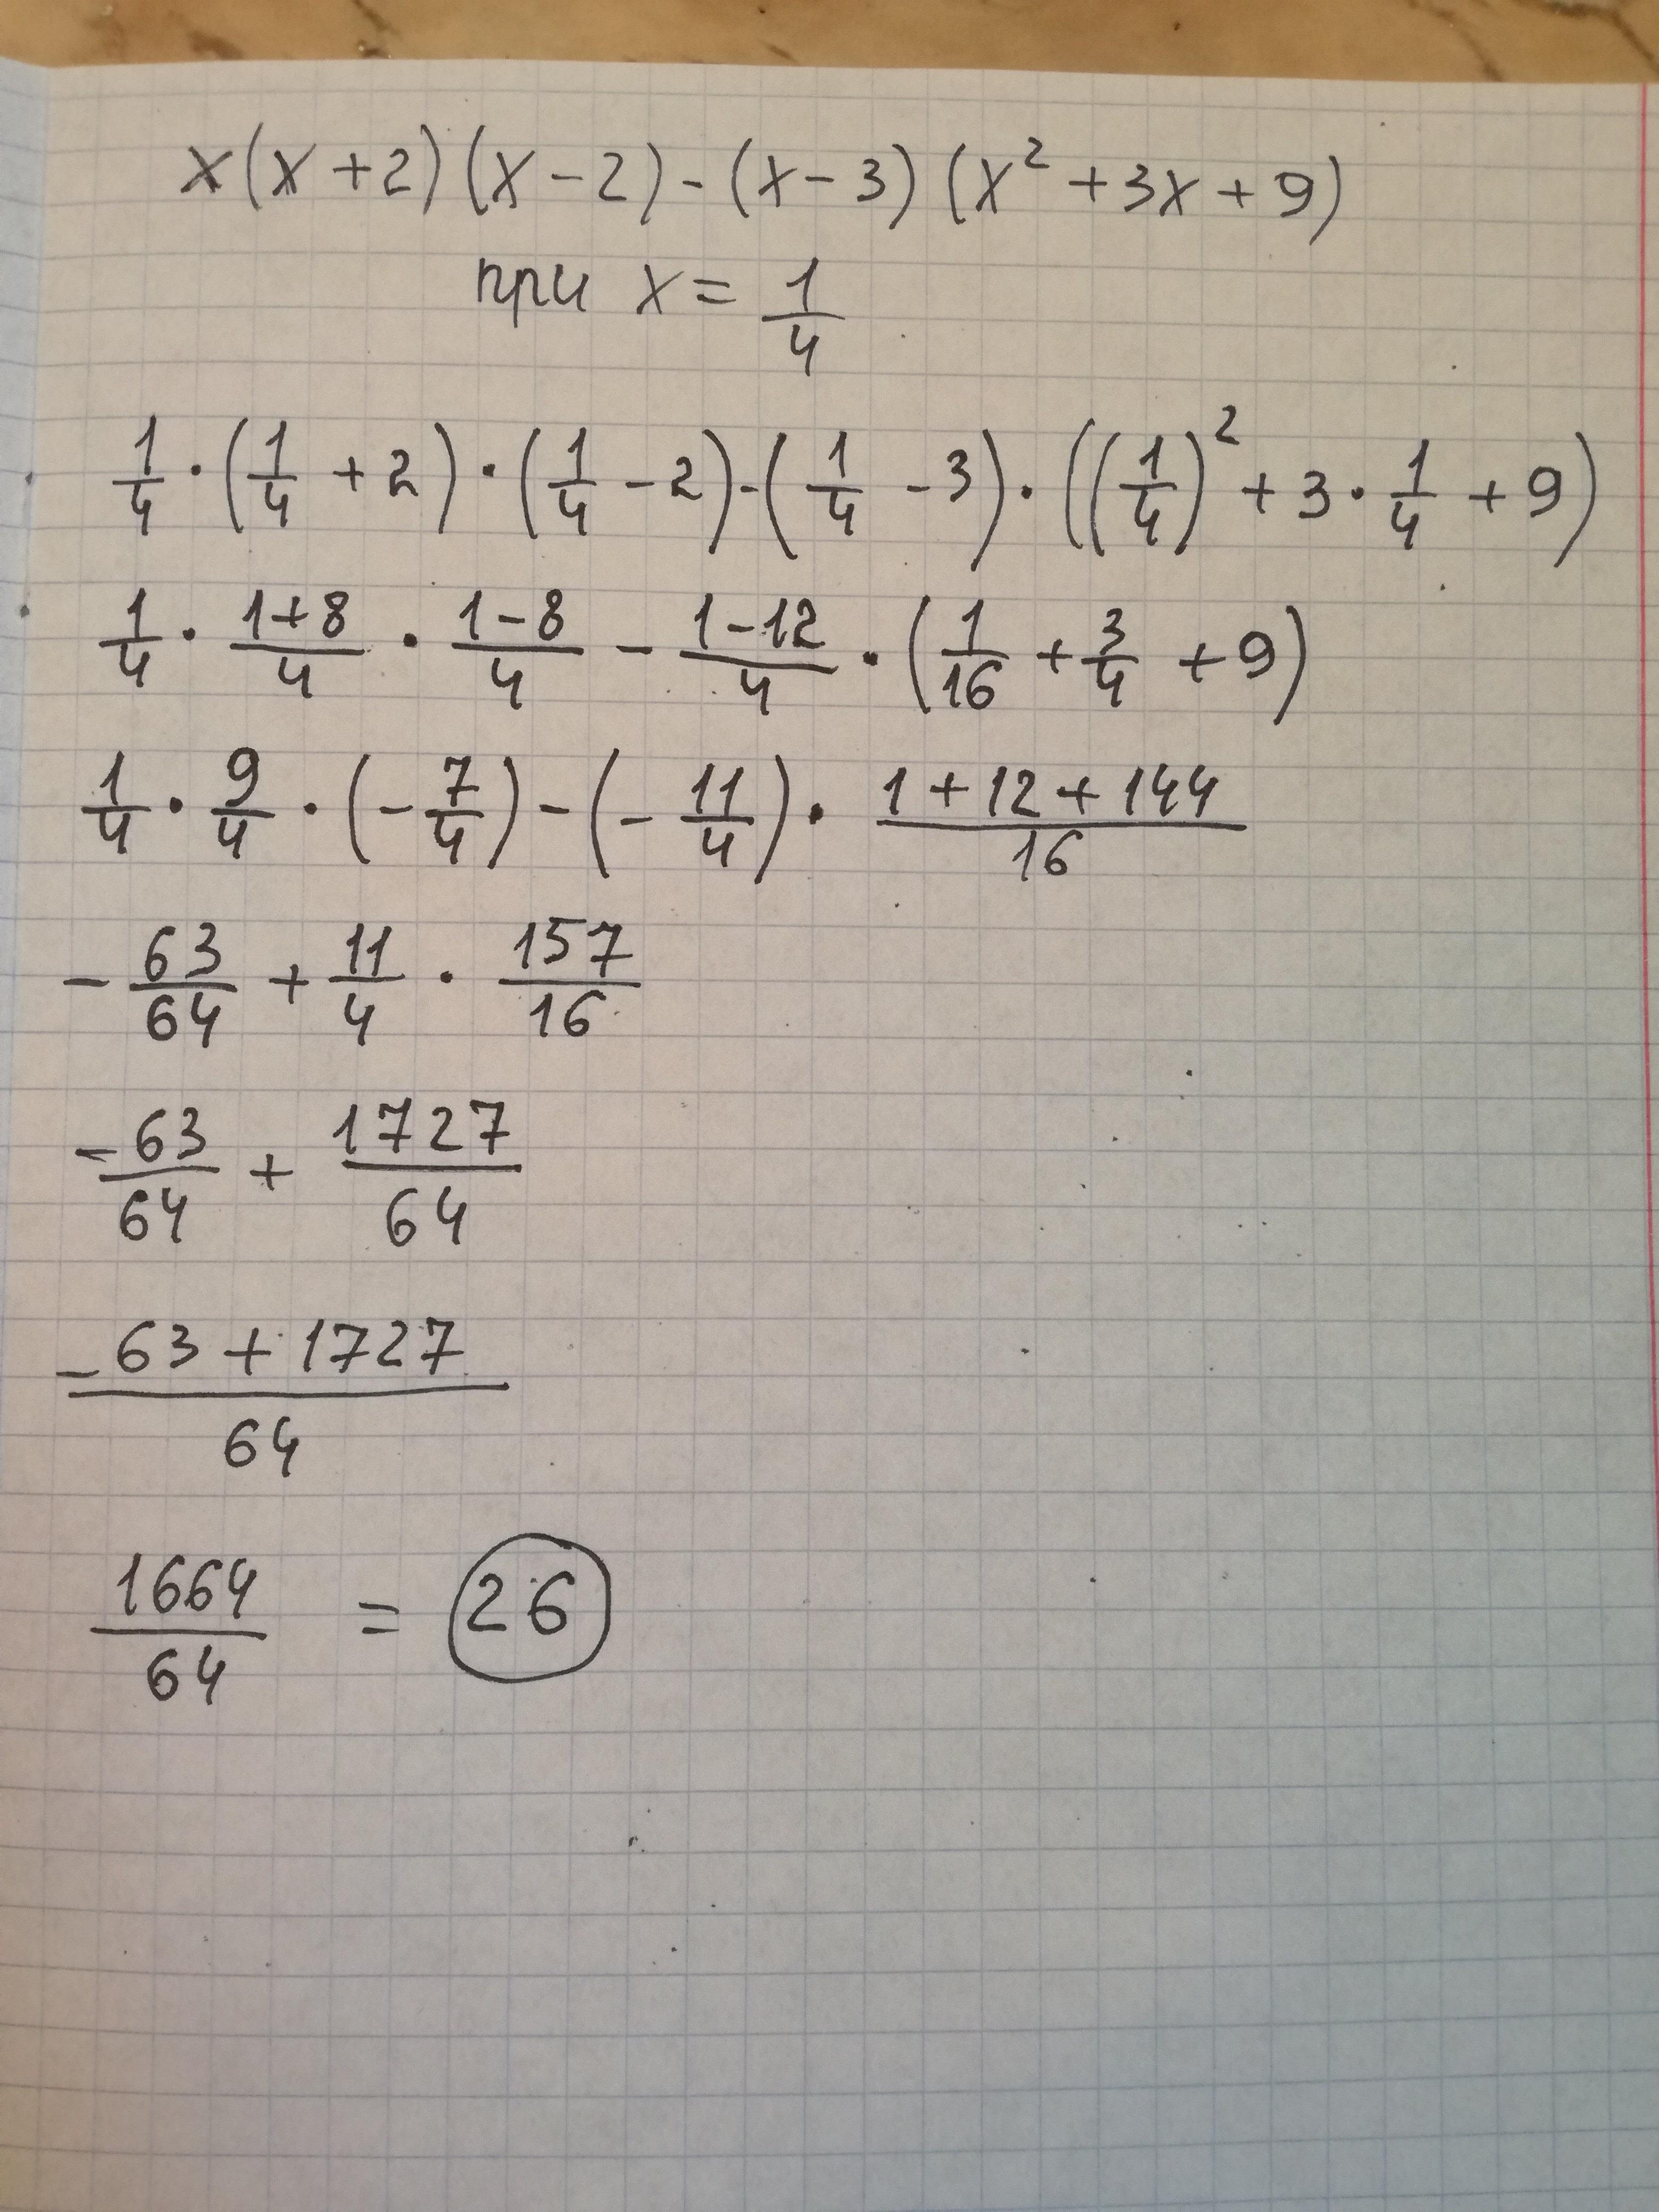 x(x+2)(x-2)-(x-3)(x²+3x+9)
при x = 1/4
1/4 · (1/4 + 2) · (1/4 - 2) - (1/4 - 3) · ((1/4)² + 3 · 1/4 + 9)
1/4 · (1+8)/4 · (1-8)/4 - (1-12)/4 · (1/16 + 3/4 + 9)
1/4 · 9/4 · (-7/4) - (-11/4) · (1+12+144)/16
-63/64 + 11/4 · 157/16
-63/64 + 1727/64
(-63+1727)/64
1664/64 = 26